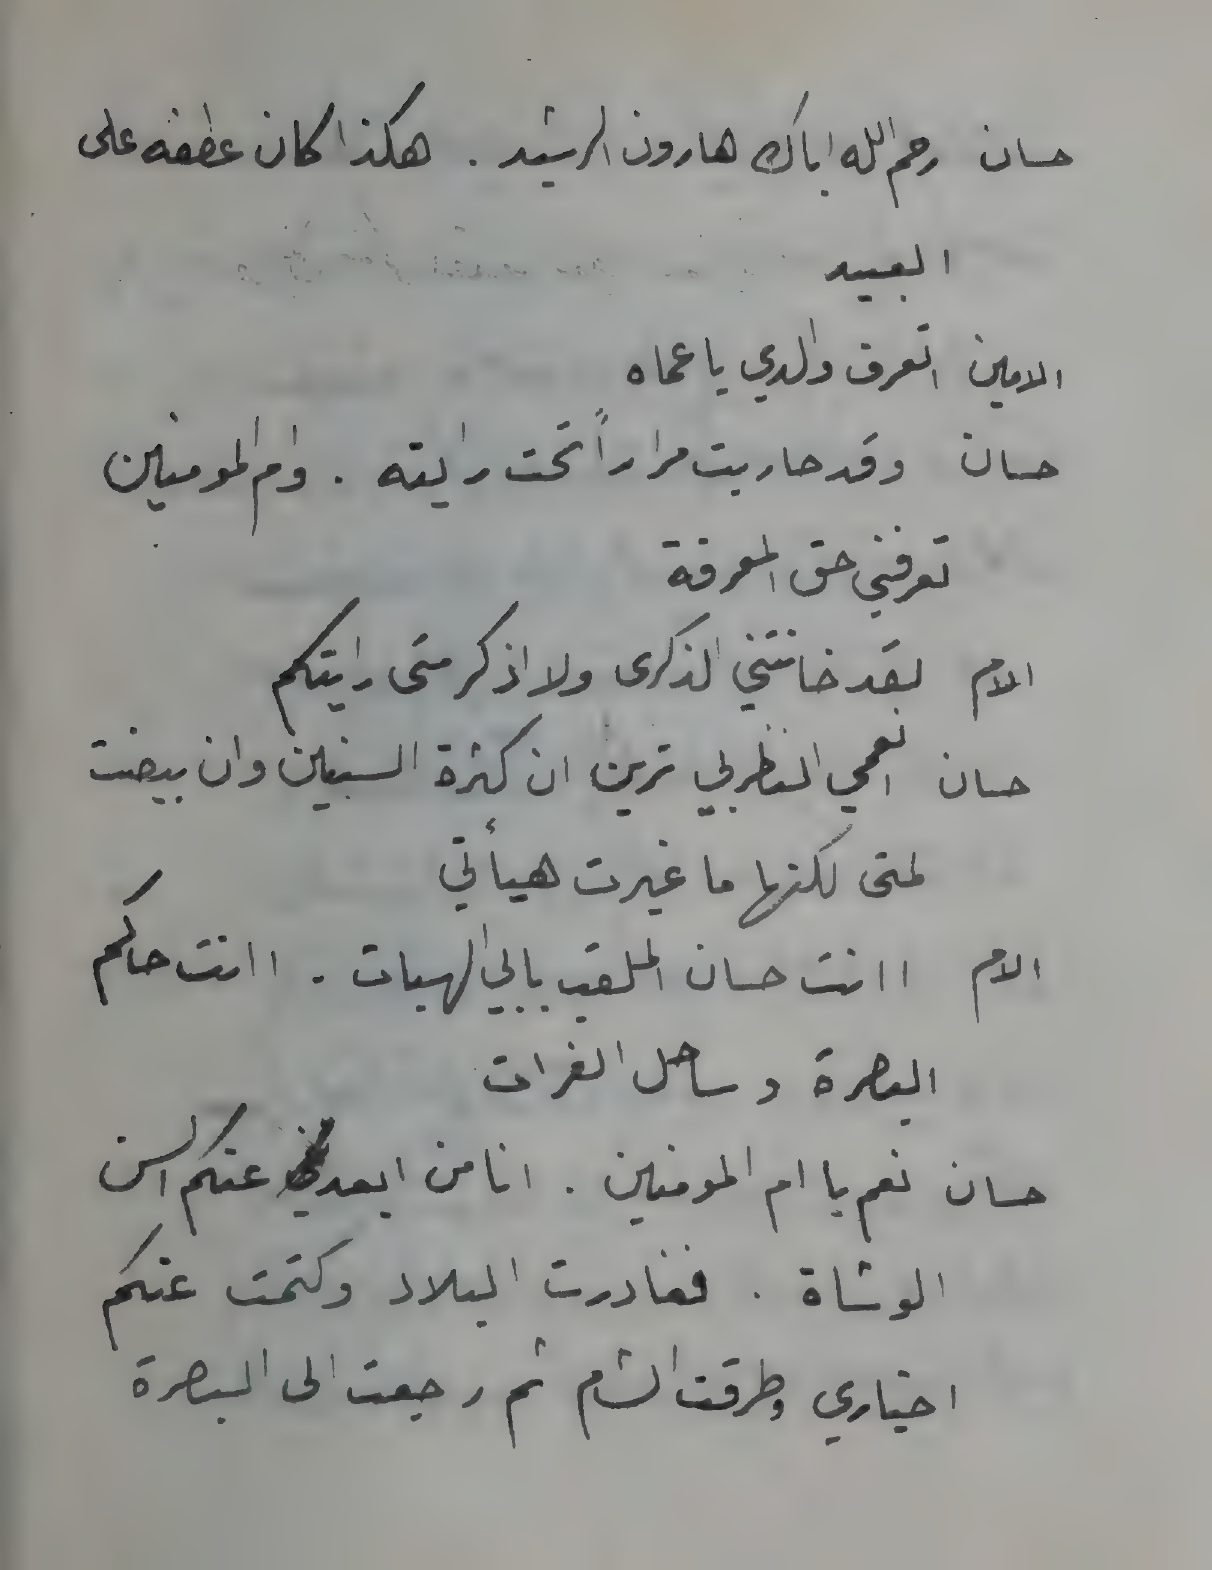 حسان رحم الله اباك هارون الرشيد . هكذا كان عطفه على
العبيد
الامين اتعرف والدي يا عماه
حسان وقد حاربت مراراً تحت رايته . وام المومنين
تعرفني حق المعرفة
الام لقد خانتني الذكرى ولا اذكر متى رايتكم
حسان انعمي النظر بي ترين ان كثرة السنين وان بيضت
لمتى لكنها ما غيرت هيأتي
الام اانت حسان الملقب بابي الهبات . اانت حاكم
البصرة وساحل الفرات
حسان نعم يا ام المومنين . انا من ابعدني عنكم السن
الوشاة . فغادرت البلاد وكتمت عنكم
اخباري وطرقت الشام ثم رجعت الى البصرة